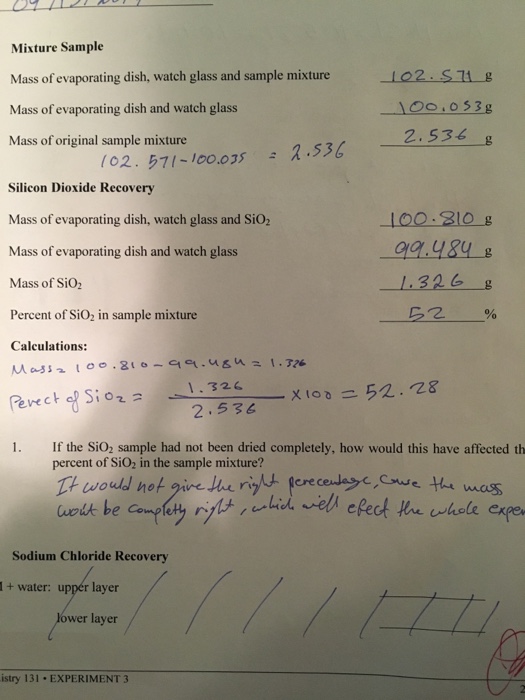 Mixture Sample
Mass of evaporating dish, watch glass and sample mixture 102.571 g
Mass of evaporating dish and watch glass 100.053 g
Mass of original sample mixture 2.536 g
102.571-100.035 = 2.536
Silicon Dioxide Recovery
Mass of evaporating dish, watch glass and SiO₂ 100.810 g
Mass of evaporating dish and watch glass 99.484 g
Mass of SiO₂ 1.326 g
Percent of SiO₂ in sample mixture 52 %
Calculations:
Mass = 100.810-99.484 = 1.326
Perect of SiO2 = 1.326 / 2.536 X100 = 52.28
1. If the SiO₂ sample had not been dried completely, how would this have affected th
percent of SiO₂ in the sample mixture?
It would not give the right perecentage, Cause the mass
wout be complety right, which well efect the whole exper
Sodium Chloride Recovery
+ water: upper layer
lower layer
istry 131 • EXPERIMENT 3